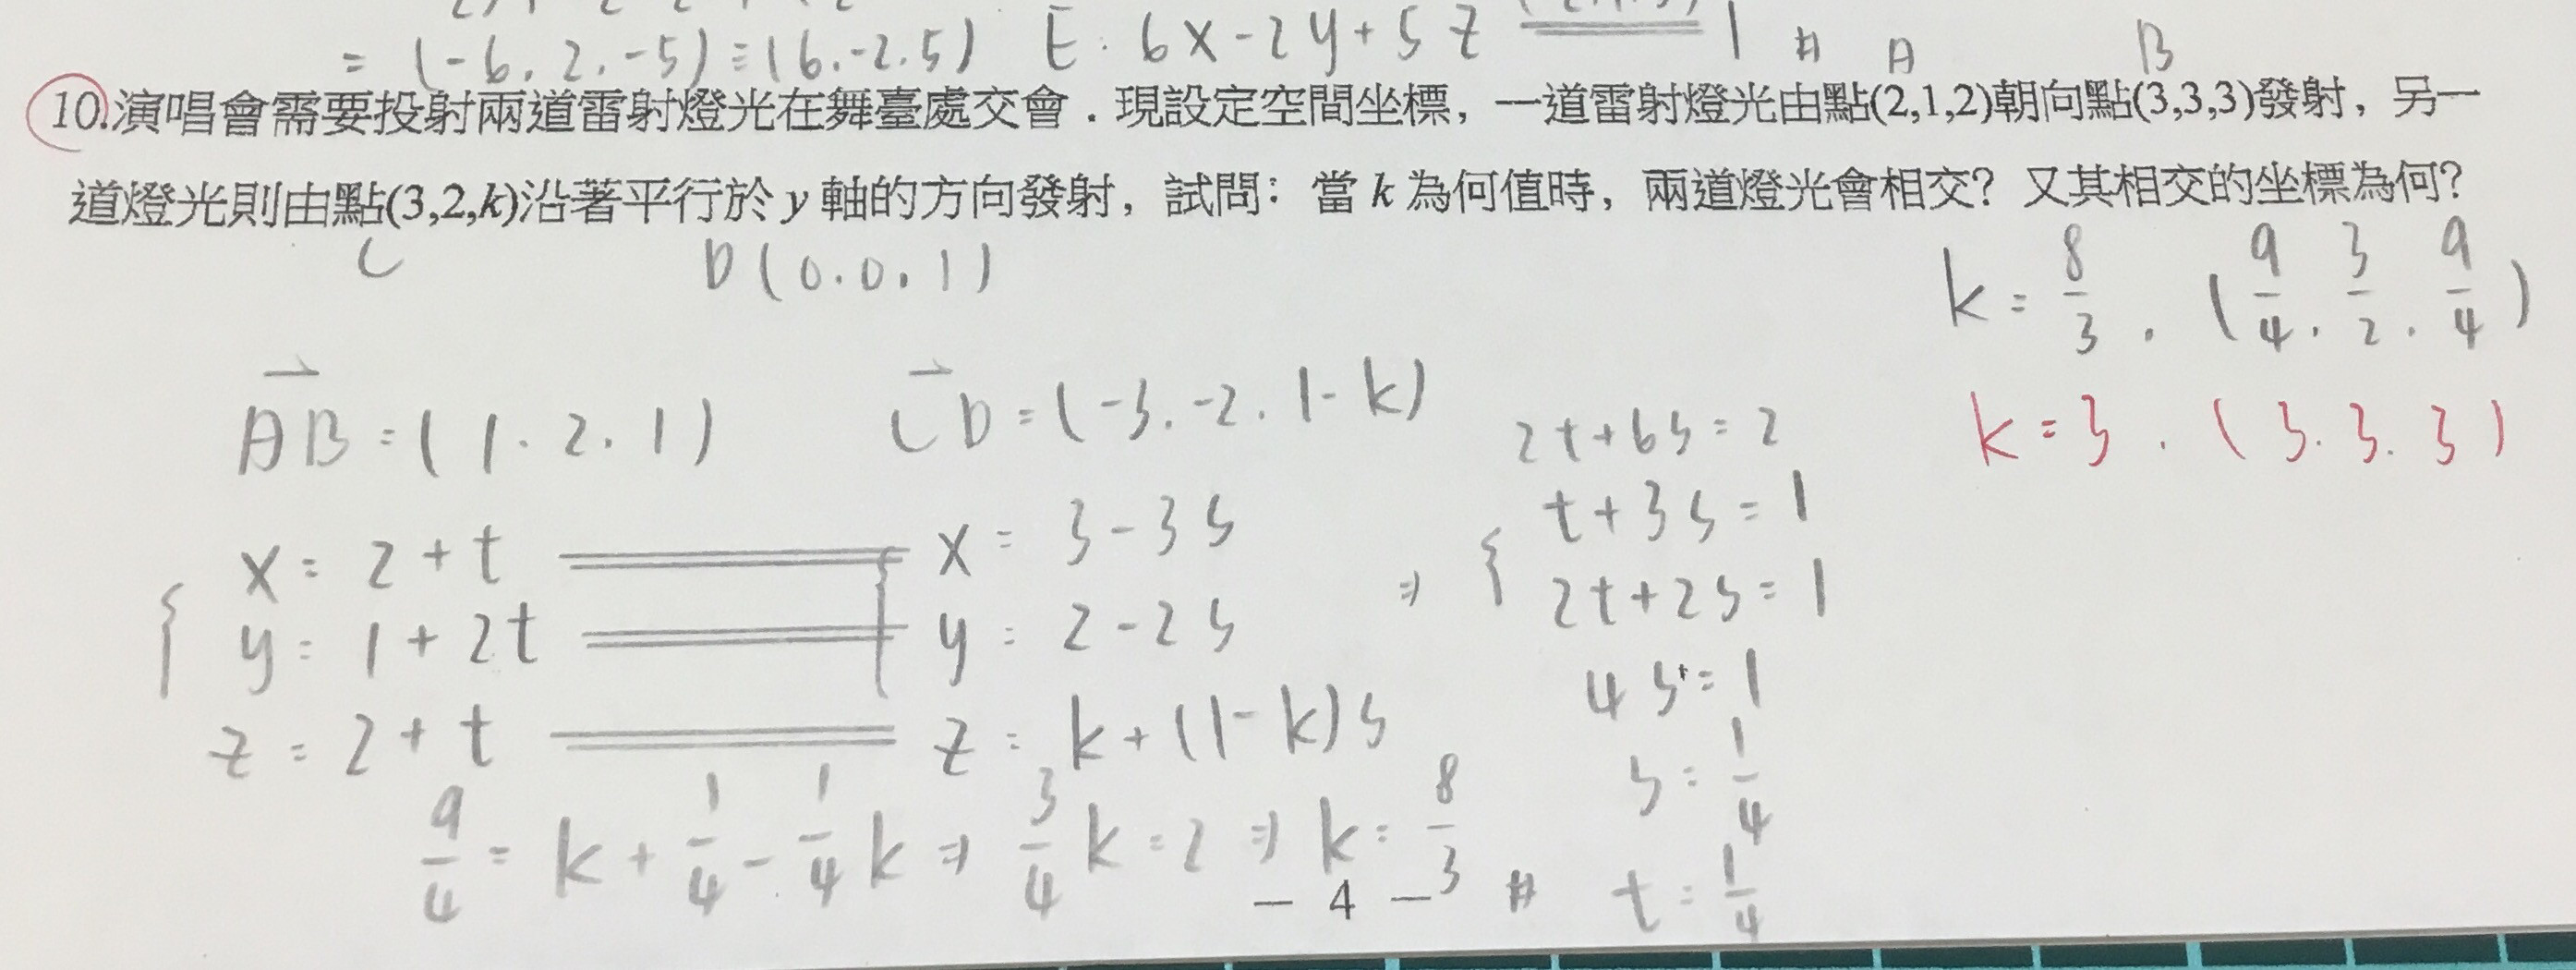 = (-6, 2, -5) = (6, -2, 5) E: 6x-2y+5z = 1 #
A B
10.演唱會需要投射兩道雷射燈光在舞臺處交會．現設定空間坐標，一道雷射燈光由點(2,1,2)朝向點(3,3,3)發射，另一
道燈光則由點(3,2,k)沿著平行於 y 軸的方向發射，試問：當 k 為何值時，兩道燈光會相交？又其相交的坐標為何？
C D(0,0,1)
k = 8/3, (9/4, 3/2, 9/4)
k = 3, (3, 3, 3)
AB = (1, 2, 1) CD = (-3, -2, 1-k)
x = 2+t x = 3-3s
y = 1+2t y = 2-2s
z = 2+t z = k+(1-k)s
2t+6s=2
⇒ { t+3s=1
2t+2s=1
4s=1
s=1/4
t=1/4
9/4 = k + 1/4 - 1/4 k ⇒ 3/4 k = 2 ⇒ k = 8/3 #
— 4 —